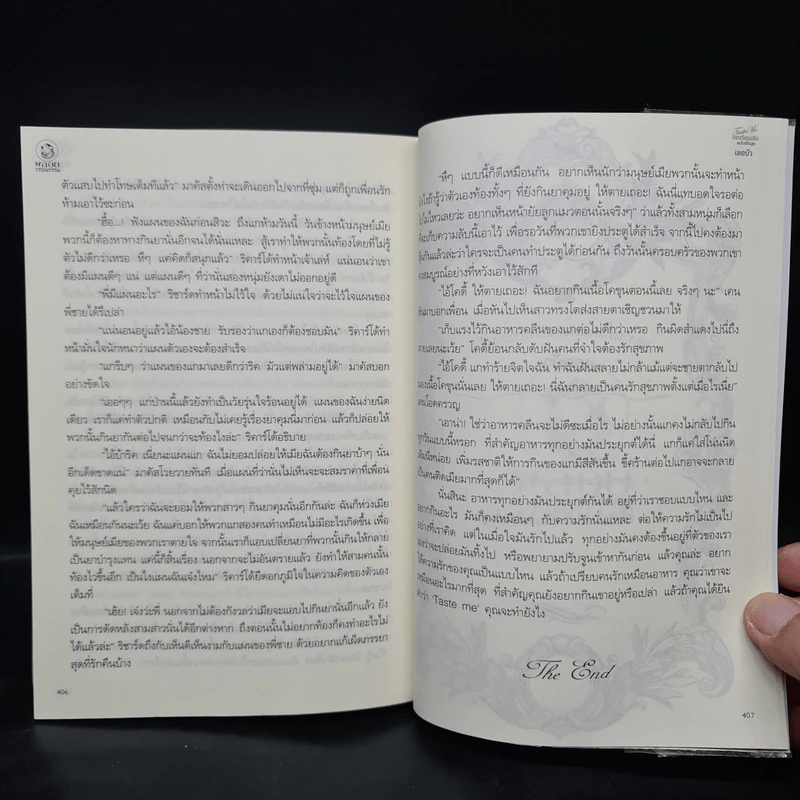 พลอย
วรรณกรรม
ตัวแสบไปทำโทษเต็มทีแล้ว” มาคัสตั้งท่าจะเดินออกไปจากที่ซุ่ม แต่ก็ถูกเพื่อนรัก
ห้ามเอาไว้ซะก่อน
“ฮื้อ...! ฟังแผนของฉันก่อนสิวะ ถึงแกห้ามวันนี้ วันข้างหน้ามนุษย์เมีย
พวกนี้ก็ต้องหาทางกินยานั่นอีกจนได้นั่นแหละ สู้เราทำให้พวกนั้นท้องโดยที่ไม่รู้
ตัวไม่ดีกว่าเหรอ หึๆ แค่คิดก็สนุกแล้ว” ริคาร์โด้ทำหน้าเจ้าเล่ห์ แน่นอนว่าเขา
ต้องมีแผนดีๆ แน่ แต่แผนดีๆ ที่ว่านั่นสองหนุ่มยังเดาไม่ออกอยู่ดี
“พี่มีแผนอะไร” ริชาร์ดทำหน้าไม่ไว้ใจ ด้วยไม่แน่ใจว่าจะไว้ใจแผนของ
พี่ชายได้รึเปล่า
“แน่นอนอยู่แล้วไอ้น้องชาย รับรองว่าแกเองก็ต้องชอบมัน” ริคาร์โด้ทำ
หน้ามั่นใจนักหนาว่าแผนตัวเองจะต้องสำเร็จ
“แกรีบๆ ว่าแผนของแกมาเลยดีกว่าริค มัวแต่พล่ามอยู่ได้” มาคัสบอก
อย่างขัดใจ
“เออๆๆ แก่ป่านนี้แล้วยังทำเป็นวัยรุ่นใจร้อนอยู่ได้ แผนของฉันง่ายนิด
เดียว เราก็แค่ทำตัวปกติ เหมือนกับไม่เคยรู้เรื่องยาคุมนี่มาก่อน แล้วก็ปล่อยให้
พวกนั้นกินยากันต่อไปจนกว่าจะท้องไงล่ะ” ริคาร์โด้อธิบาย
“ไอ้บ้าริค เนี่ยนะแผนแก ฉันไม่ยอมปล่อยให้เมียฉันต้องกินยาบ้าๆ นั่น
อีกเด็ดขาดแน่” มาคัสโวยวายทันที เมื่อแผนที่ว่านั่นไม่เห็นจะจะสมราคาที่เพื่อน
คุยไว้สักนิด
“แล้วใครว่าฉันจะยอมให้พวกสาวๆ กินยาคุมนั่นอีกกันล่ะ ฉันก็ห่วงเมีย
ฉันเหมือนกันนะเว้ย ฉันแค่บอกให้พวกแกสองคนทำเหมือนไม่มีอะไรเกิดขึ้น เพื่อ
ให้มนุษย์เมียของพวกเราตายใจ จากนั้นเราก็แอบเปลี่ยนยาที่พวกนั้นกินให้กลาย
เป็นยาบำรุงแทน แค่นี้ก็สิ้นเรื่อง นอกจากจะไม่อันตรายแล้ว ยังทำให้สามคนนั้น
ท้องไวขึ้นอีก เป็นไงแผนฉันเจ๋งไหม” ริคาร์โด้ยืดอกภูมิใจในความคิดของตัวเอง
เต็มที่
“เฮ้ย! เจ๋งว่ะพี่ นอกจากไม่ต้องกังวลว่าเมียจะแอบไปกินยานั่นอีกแล้ว ยัง
เป็นการดัดหลังสามสาวนั่นได้อีกต่างหาก ถึงตอนนั้นไม่อยากท้องก็คงทำอะไรไม่
ได้แล้วล่ะ” ริชาร์ดถึงกับเห็นดีเห็นงามกับแผนของพี่ชาย ด้วยอยากแก้เผ็ดภรรยา
สุดที่รักคืนบ้าง
406
Taste Me
เลอบัว
“หึๆ แบบนี้ก็ดีเหมือนกัน อยากเห็นนักว่ามนุษย์เมียพวกนั้นจะทำหน้า
ยังไงถ้ารู้ว่าตัวเองท้องทั้งๆ ที่ยังกินยาคุมอยู่ ให้ตายเถอะ! ฉันนี่แทบอดใจรอต่อ
ไปไม่ไหวเลยว่ะ อยากเห็นหน้ายัยลูกแมวตอนนั้นจริงๆ” ว่าแล้วทั้งสามหนุ่มก็เลือก
ที่จะเก็บความลับนี้เอาไว้ เพื่อรอวันที่พวกเขายิงประตูได้สำเร็จ จากนี้ไปคงต้องมา
ลุ้นกันแล้วล่ะว่าใครจะเป็นคนทำประตูได้ก่อนกัน ถึงวันนั้นครอบครัวของพวกเขา
คงสมบูรณ์อย่างที่หวังเอาไว้สักที
“ไอ้โคดี้ ให้ตายเถอะ! ฉันอยากกินเนื้อโคขุนตอนนี้เลย จริงๆ นะ” เคน
หันมาบอกเพื่อน เมื่อหันไปเห็นสาวทรงโตส่งสายตาเชิญชวนมาให้
“เก็บแรงไว้กินอาหารคลีนของแกต่อไม่ดีกว่าเหรอ กินผิดสำแดงไปนี่ถึง
ตายเลยนะเว้ย” โคดี้ย้อนกลับดับฝันคนที่จำใจต้องรักสุขภาพ
“ไอ้โคดี้ แกทำร้ายจิตใจฉัน ทำฉันฝันสลายไม่กล้าแม้แต่จะชายตากลับไป
มองเนื้อโคขุนนั่นเลย ให้ตายเถอะ! นี่ฉันกลายเป็นคนรักสุขภาพตั้งแต่เมื่อไรเนี่ย”
เคนโอดครวญ
“เอาน่า! ใช่ว่าอาหารคลีนจะไม่ดีซะเมื่อไร ไม่อย่างนั้นแกคงไม่กลับไปกิน
ทุกวันแบบนี้หรอก ที่สำคัญอาหารทุกอย่างมันประยุกต์ได้นี่ แกก็แค่ใส่โน่นนิด
เติมนี่หน่อย เพิ่มรสชาติให้การกินของแกมีสีสันขึ้น ขี้คร้านต่อไปแกอาจจะกลาย
เป็นคนติดเมียมากที่สุดก็ได้”
นั่นสินะ อาหารทุกอย่างมันประยุกต์กันได้ อยู่ที่ว่าเราชอบแบบไหน และ
อยากกินอะไร มันก็คงเหมือนๆ กับความรักนั่นแหละ ต่อให้ความรักไม่เป็นไป
อย่างที่เราคิด แต่ในเมื่อใจมันรักไปแล้ว ทุกอย่างมันคงต้องขึ้นอยู่ที่ตัวของเรา
เองว่าจะปล่อยมันทิ้งไป หรือพยายามปรับจูนเข้าหากันก่อน แล้วคุณล่ะ อยาก
ให้ความรักของคุณเป็นแบบไหน แล้วถ้าเปรียบคนรักเหมือนอาหาร คุณว่าเขาจะ
เหมือนอะไรมากที่สุด ที่สำคัญคุณยังอยากกินเขาอยู่หรือเปล่า แล้วถ้าคุณได้ยิน
คำว่า ‘Taste me’ คุณจะทำยังไง
The End
407